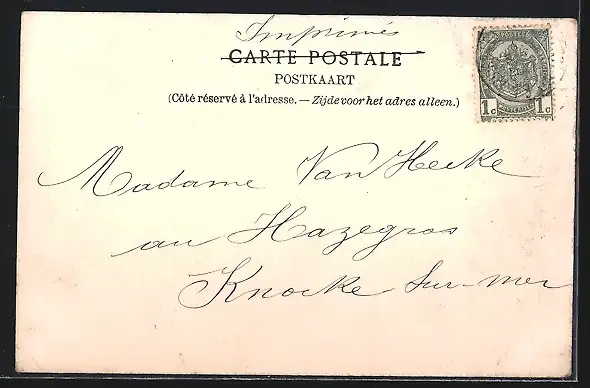 Imprimés
CARTE POSTALE
POSTKAART
(Côté réservé à l'adresse. — Zijde voor het adres alleen.)
POSTES
1c 1c
Madame Van Hecke
au Hazegras
Knocke sur-mer